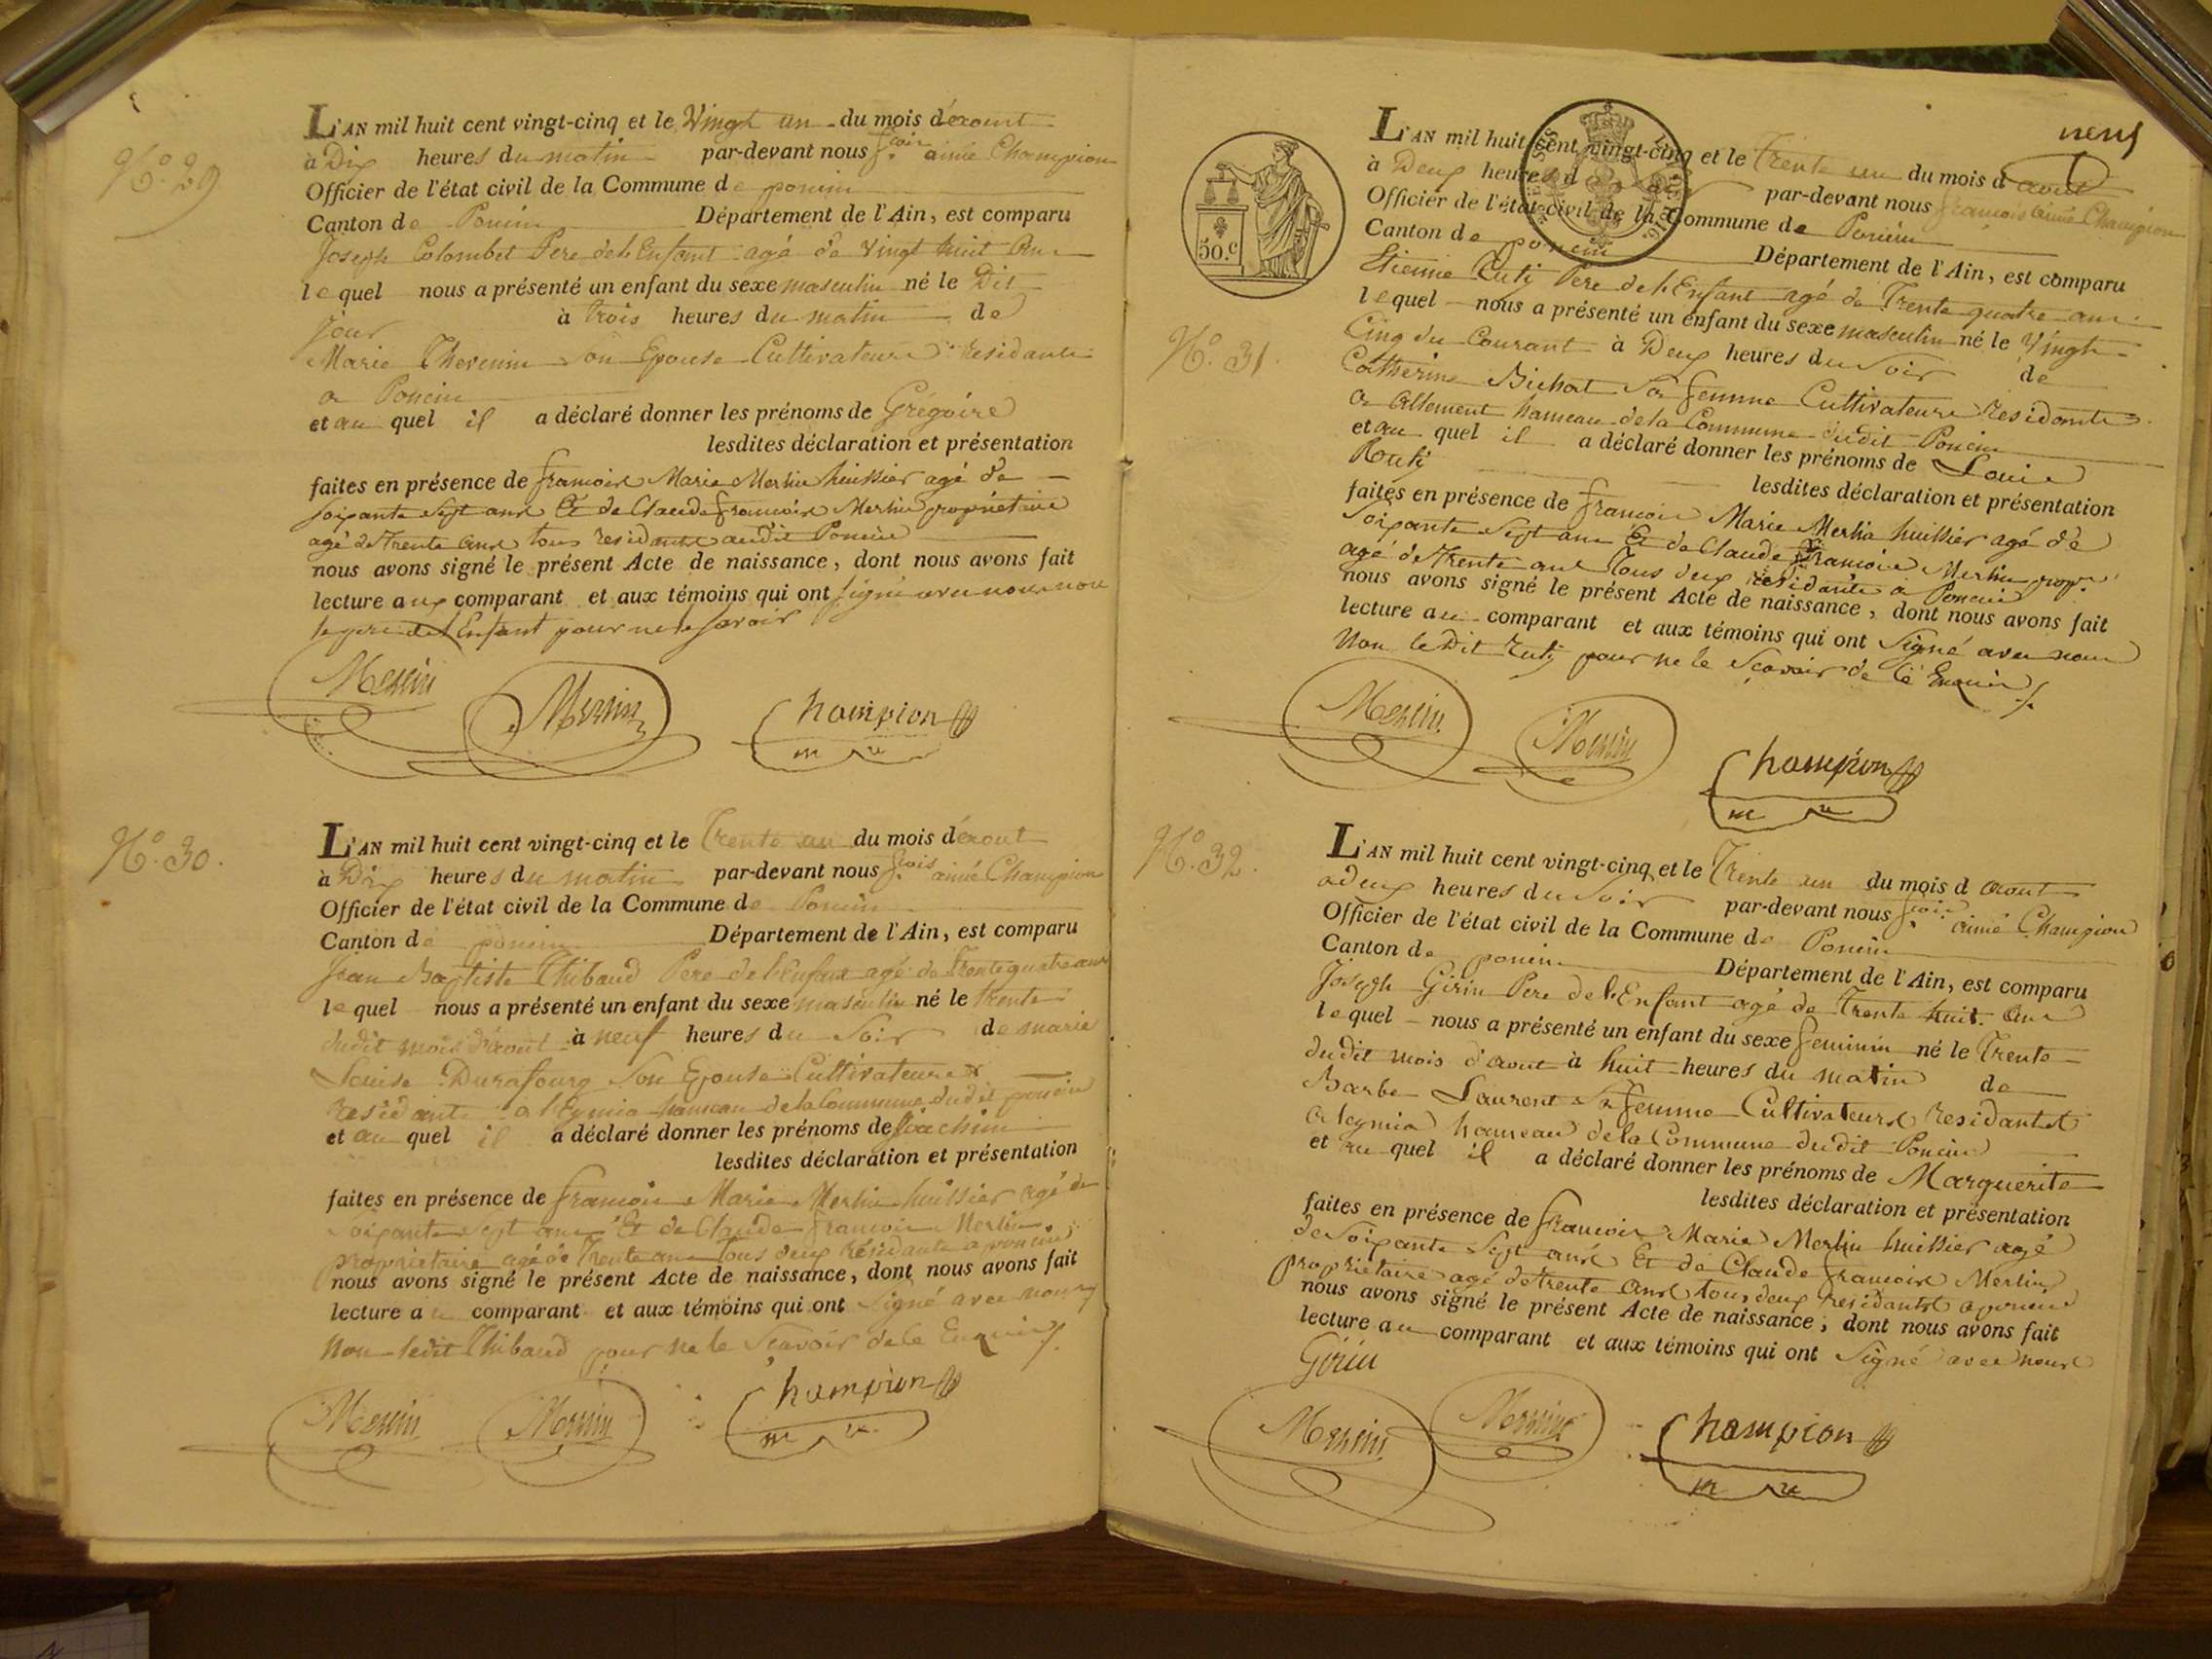 N.° 29
L'AN mil huit cent vingt-cinq et le Vingt un du mois d'exout
à Dix heures du matin par-devant nous f.cois aimé Champion
Officier de l'état civil de la Commune de poncin
Canton de Poncin Département de l'Ain, est comparu
Joseph Colombet Pere de l'Enfant agé de vingt huit Ans
lequel nous a présenté un enfant du sexe masculin né le Dit
Jour à trois heures du matin de
Marie Thevenin Son Epouse Cultivateurs residants
a Poncin
et au quel il a déclaré donner les prénoms de Grégoire
lesdites déclaration et présentation
faites en présence de francois Marie Merlin huissier agé de
soixante Sept ans Et de Claude francois Merlin propriétaire
agé de Trente Ans tous residants audit Poncin
nous avons signé le présent Acte de naissance, dont nous avons fait
lecture aux comparant et aux témoins qui ont signé avec nous non
le pere de l'Enfant pour ne le savoir
Merlin Merlin Champion
N.° 30.
L'AN mil huit cent vingt-cinq et le Trente un du mois d'exout
à Dix heures du matin par-devant nous f.cois aimé Champion
Officier de l'état civil de la Commune de Poncin
Canton de poncin Département de l'Ain, est comparu
Jean Baptiste Thibaud Pere de l'Enfant agé de Trente quatre ans
lequel nous a présenté un enfant du sexe masculin né le trente
dudit mois d'exout à neuf heures du Soir de marie
Louise Durafourg Son Epouse Cultivateurs
residants a leymia hameau de la Commune dudit poncin
et au quel il a déclaré donner les prénoms de Joachim
lesdites déclaration et présentation
faites en présence de francois Marie Merlin huissier agé de
soixante sept ans Et de Claude francois Merlin
propriétaire agé de Trente ans Tous deux résidants a poncin
nous avons signé le présent Acte de naissance, dont nous avons fait
lecture au comparant et aux témoins qui ont signé avec nous
Non ledit Thibaud pour ne le Scavoir de ce Enquis /.
Merlin Merlin Champion
neuf
50.c
N.° 31.
L'AN mil huit cent vingt-cinq et le Trente un du mois d aout
à Deux heures d par-devant nous francois aimé Champion
Officier de l'état civil de la Commune de Poncin
Canton de poncin Département de l'Ain, est comparu
Etienne Ruty Pere de l'Enfant agé de Trente quatre ans
lequel nous a présenté un enfant du sexe masculin né le Vingt
Cinq du Courant à Deux heures du Soir de
Catherine Bichat Sa femme Cultivateurs residants
a Allement hameau de la Commune dudit Poncin
et au quel il a déclaré donner les prénoms de Louis
Ruty lesdites déclaration et présentation
faites en présence de francois Marie Merlin huissier agé de
Soixante Sept ans Et de Claude francois Merlin prop.re
agé de Trente ans Tous deux résidants a Poncin
nous avons signé le présent Acte de naissance, dont nous avons fait
lecture au comparant et aux témoins qui ont Signé avec nous
Non le Dit Ruty pour ne le Scavoir de ce Enquis /.
Merlin Merlin Champion
N.° 32.
L'AN mil huit cent vingt-cinq et le Trente un du mois d aout
a deux heures du Soir par-devant nous f.cois aimé Champion
Officier de l'état civil de la Commune de Poncin
Canton de poncin Département de l'Ain, est comparu
Joseph Girin Pere de l'Enfant agé de Trente huit Ans
lequel nous a présenté un enfant du sexe feminin né le Trente
dudit mois d'aout à huit heures du matin de
Barbe Laurent Sa femme Cultivateurs residants
a leymia hameau de la Commune dudit Poncin
et au quel il a déclaré donner les prénoms de Marguerite
lesdites déclaration et présentation
faites en présence de francois Marie Merlin huissier agé
de Soixante Sept ans Et de Claude francois Merlin
propriétaire agé de trente Ans tous deux residants a poncin
nous avons signé le présent Acte de naissance, dont nous avons fait
lecture au comparant et aux témoins qui ont Signé avec nous
Girin
Merlin Merlin Champion